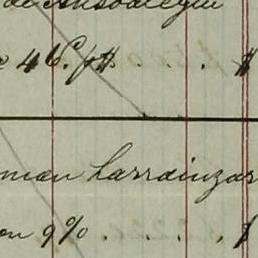 de Ansoategui
46. p$ . . . $
man Larrainzar
on 9% . . . . $